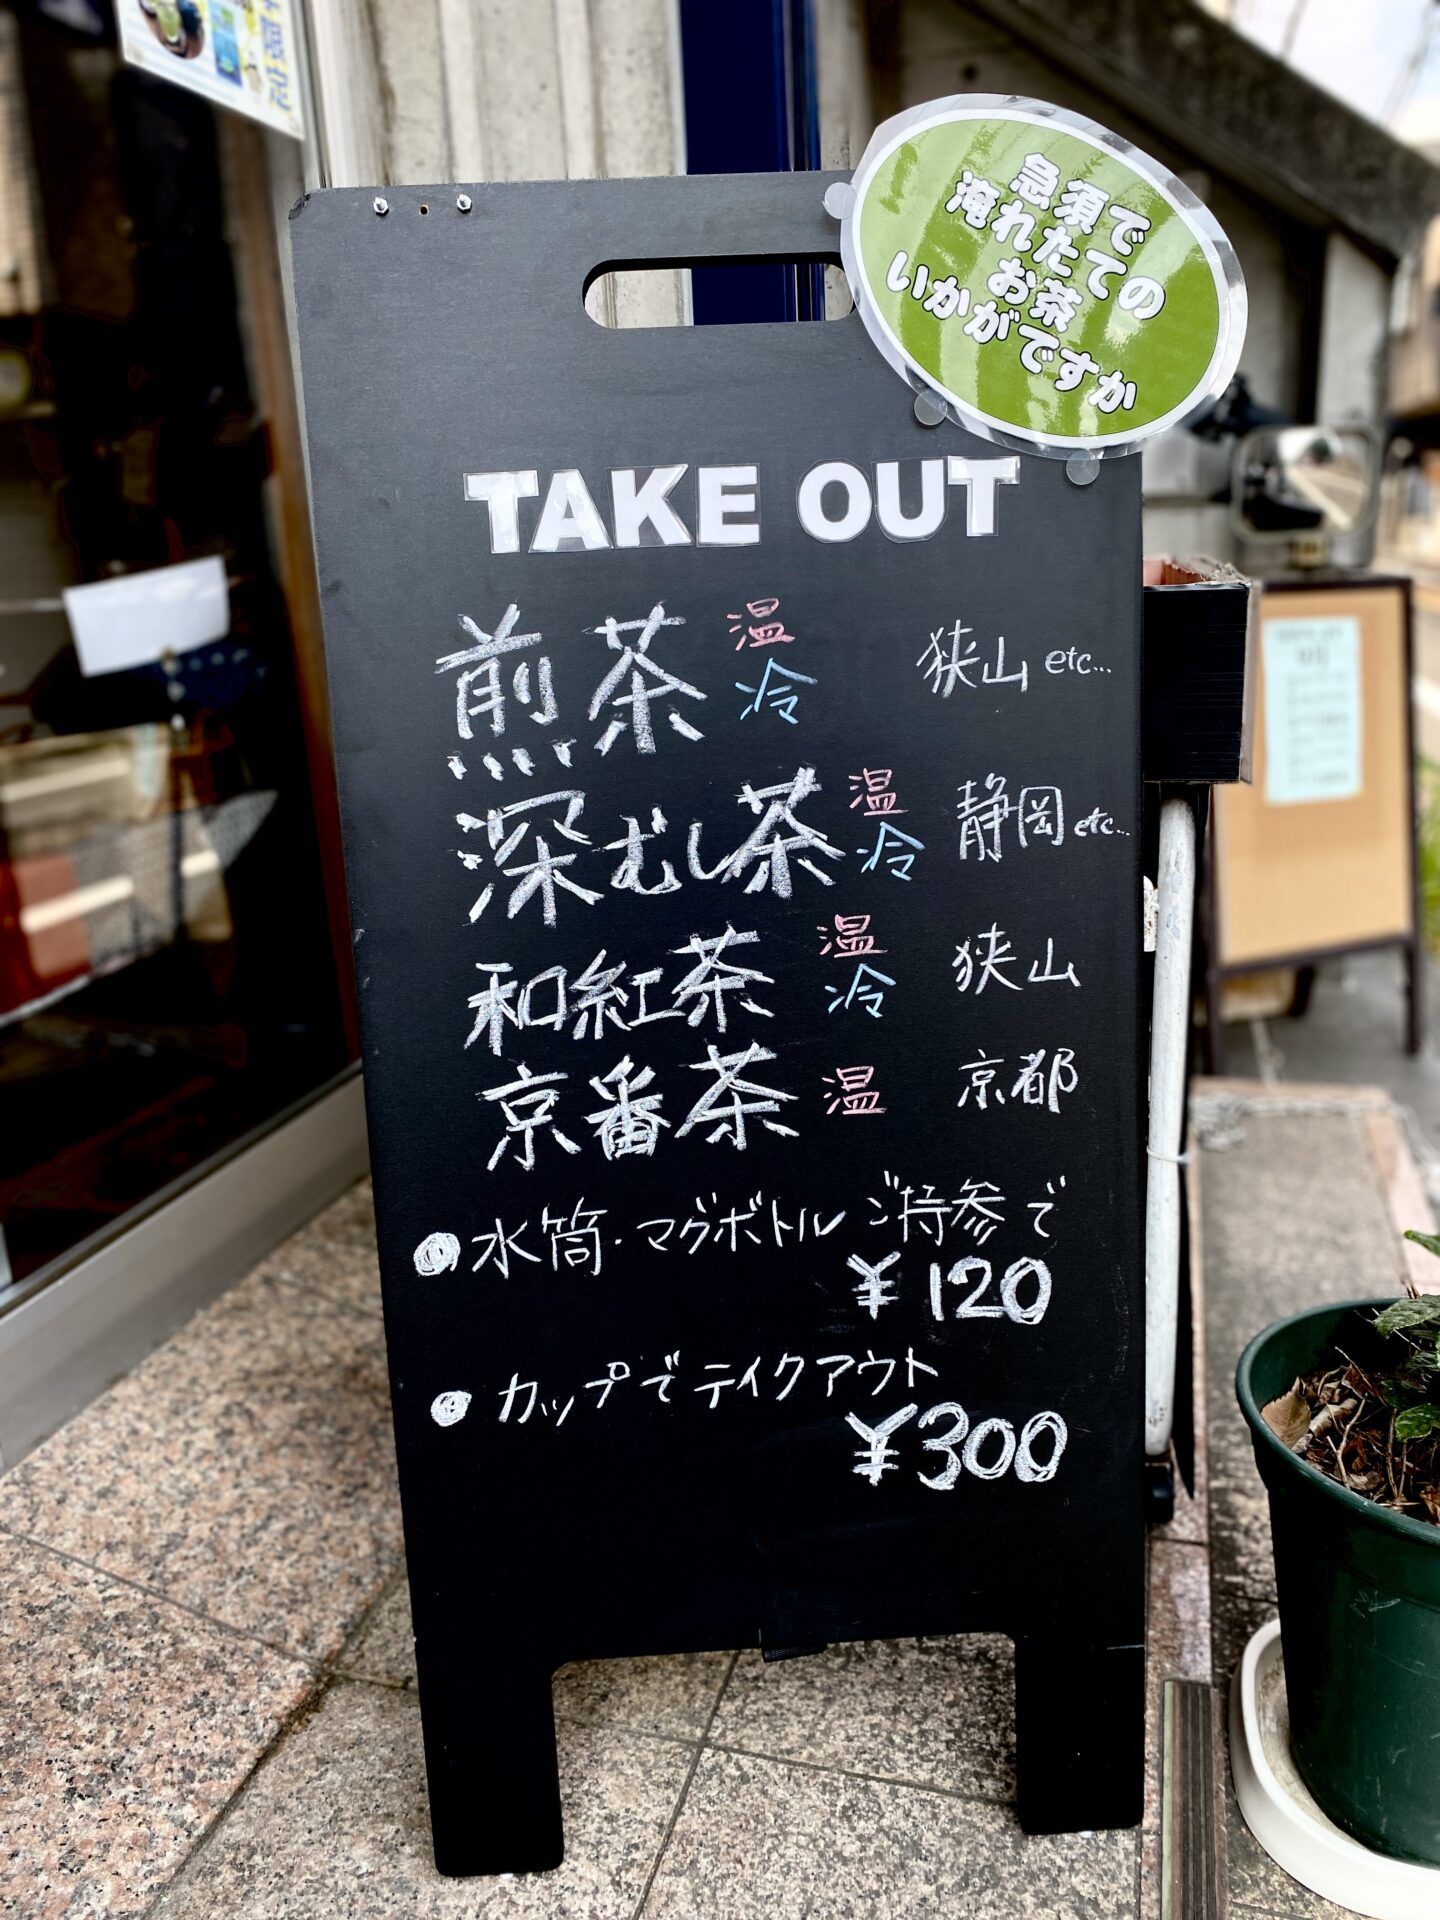 急須で
淹れたての
お茶
いかがですか
TAKE OUT
煎茶 温 冷 狭山 etc...
深むし茶 温 冷 静岡 etc...
和紅茶 温 冷 狭山
京番茶 温 京都
●水筒・マグボトルご持参で
¥120
●カップでテイクアウト
¥300